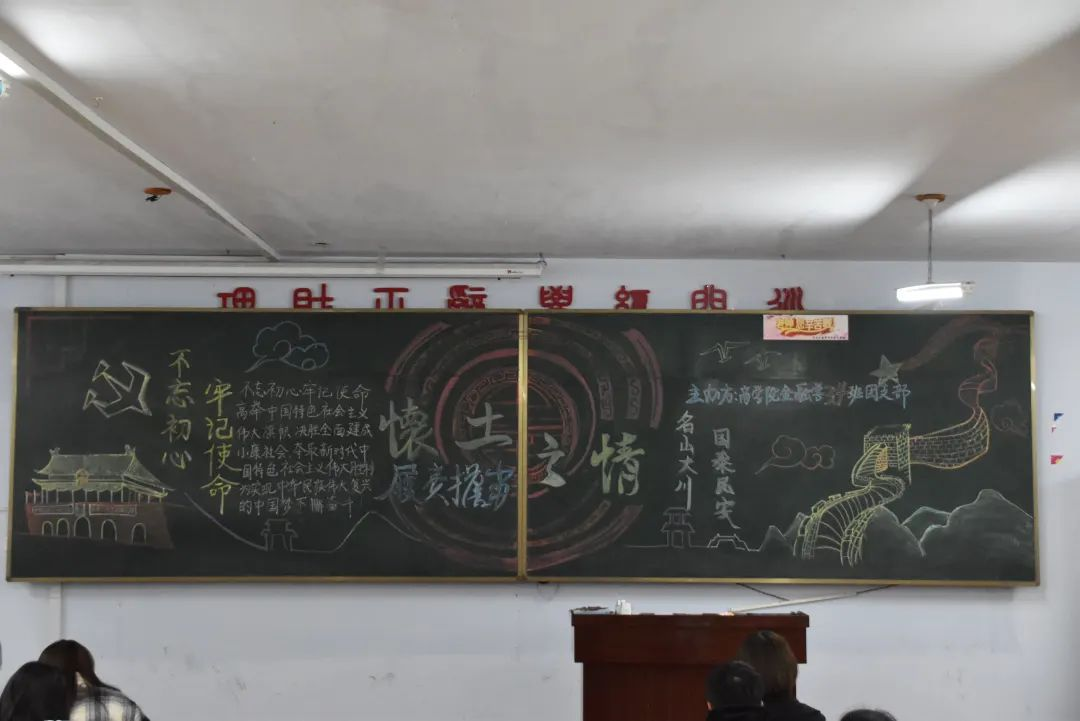 不忘初心
牢记使命
不忘初心牢记使命
高举中国特色社会主义
伟大旗帜 决胜全面建成
小康社会、夺取新时代中
国特色社会主义伟大胜利
为实现中华民族伟大复兴
的中国梦不懈奋斗
懷土之情
主办方:商学院金融学 班团支部
名山大川
国泰民安